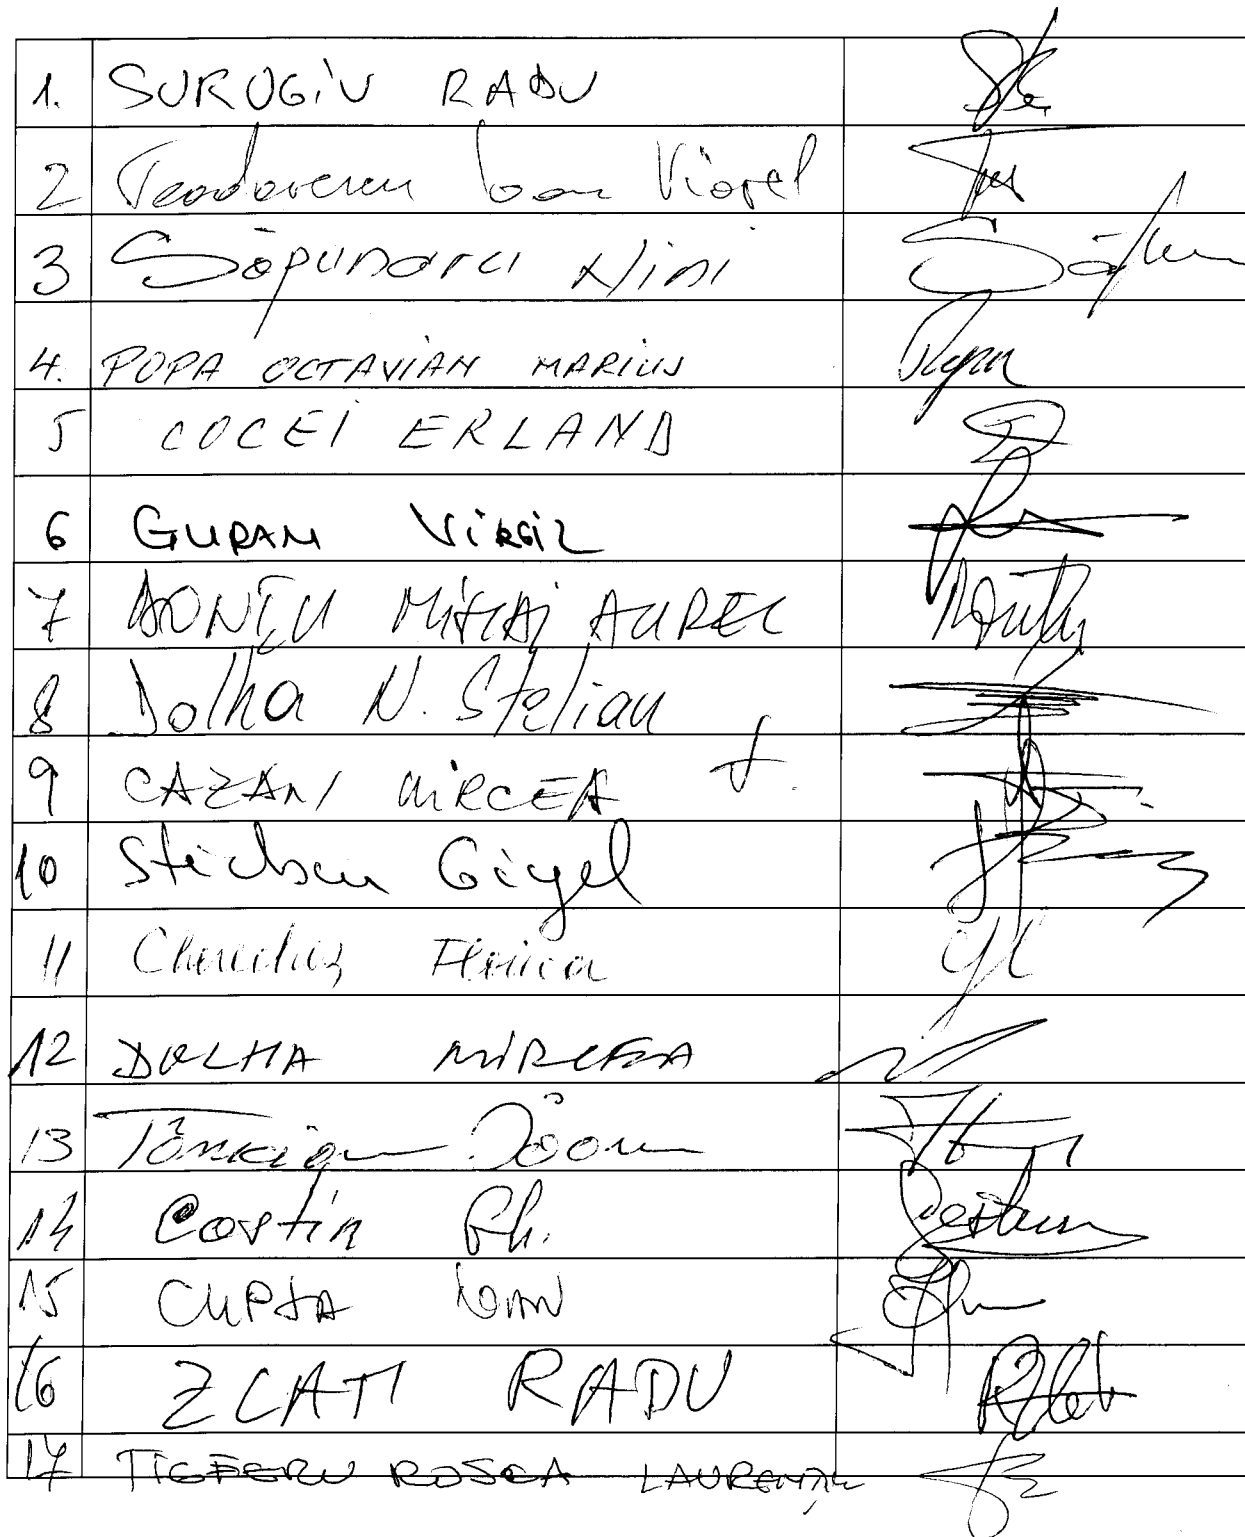 1. SURUGIU RADU
2 Teodorescu Ioan Viorel
3 Săpunaru Nini
4. POPA OCTAVIAN MARIUS
5 COCEI ERLAND
6 GURAN VIRGIL
7 DONȚU MIHAI AUREL
8 Dolha N. Stelian
9 CAZAN MIRCEA
10 Știrbu Gigel
11 Cherecheș Florica
12 DOLHA MIRCEA
13
14 Costin Gh.
15 CUPȘA Ioan
16 ZLATI RADU
17 TIGĂERU ROȘCA LAURENȚIU